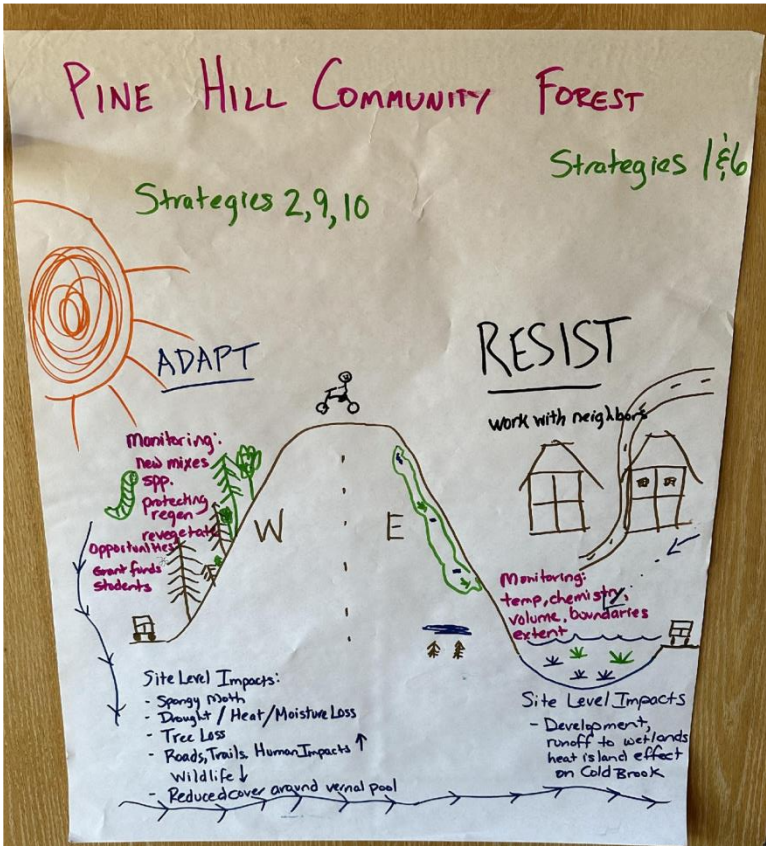 PINE HILL COMMUNITY FOREST
Strategies 1 & 6
Strategies 2, 9, 10
ADAPT
RESIST
work with neighbors
Monitoring:
new mixes
spp.
protecting
regen
revegetate
Opportunities
Grant funds
Students
W
E
Monitoring:
temp, chemistry,
volume, boundaries
extent
Site Level Impacts:
- Spongy Moth
- Drought / Heat / Moisture Loss
- Tree Loss
- Roads, Trails, Human Impacts ↑
Wildlife ↓
- Reduced cover around vernal pool
Site Level Impacts
- Development,
runoff to wetlands
heat island effect
on Cold Brook